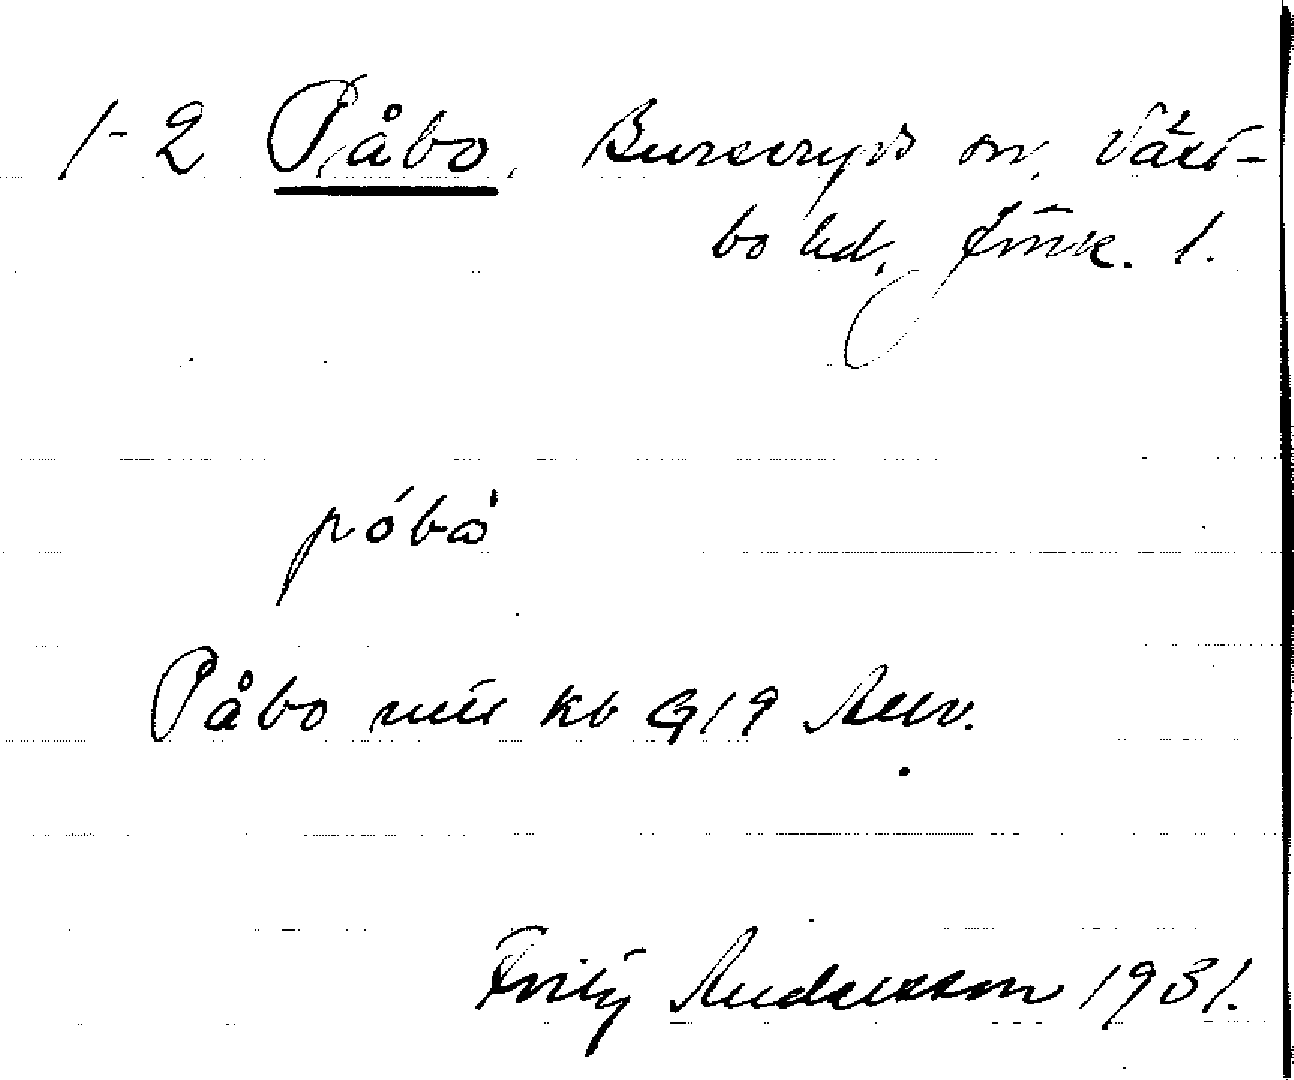 1-2 Påbo. Burseryds sn, Väst-
bo hd, Jönk. l.
póbò
Påbo kb 919 Allv.
Frity Andersson 1931.